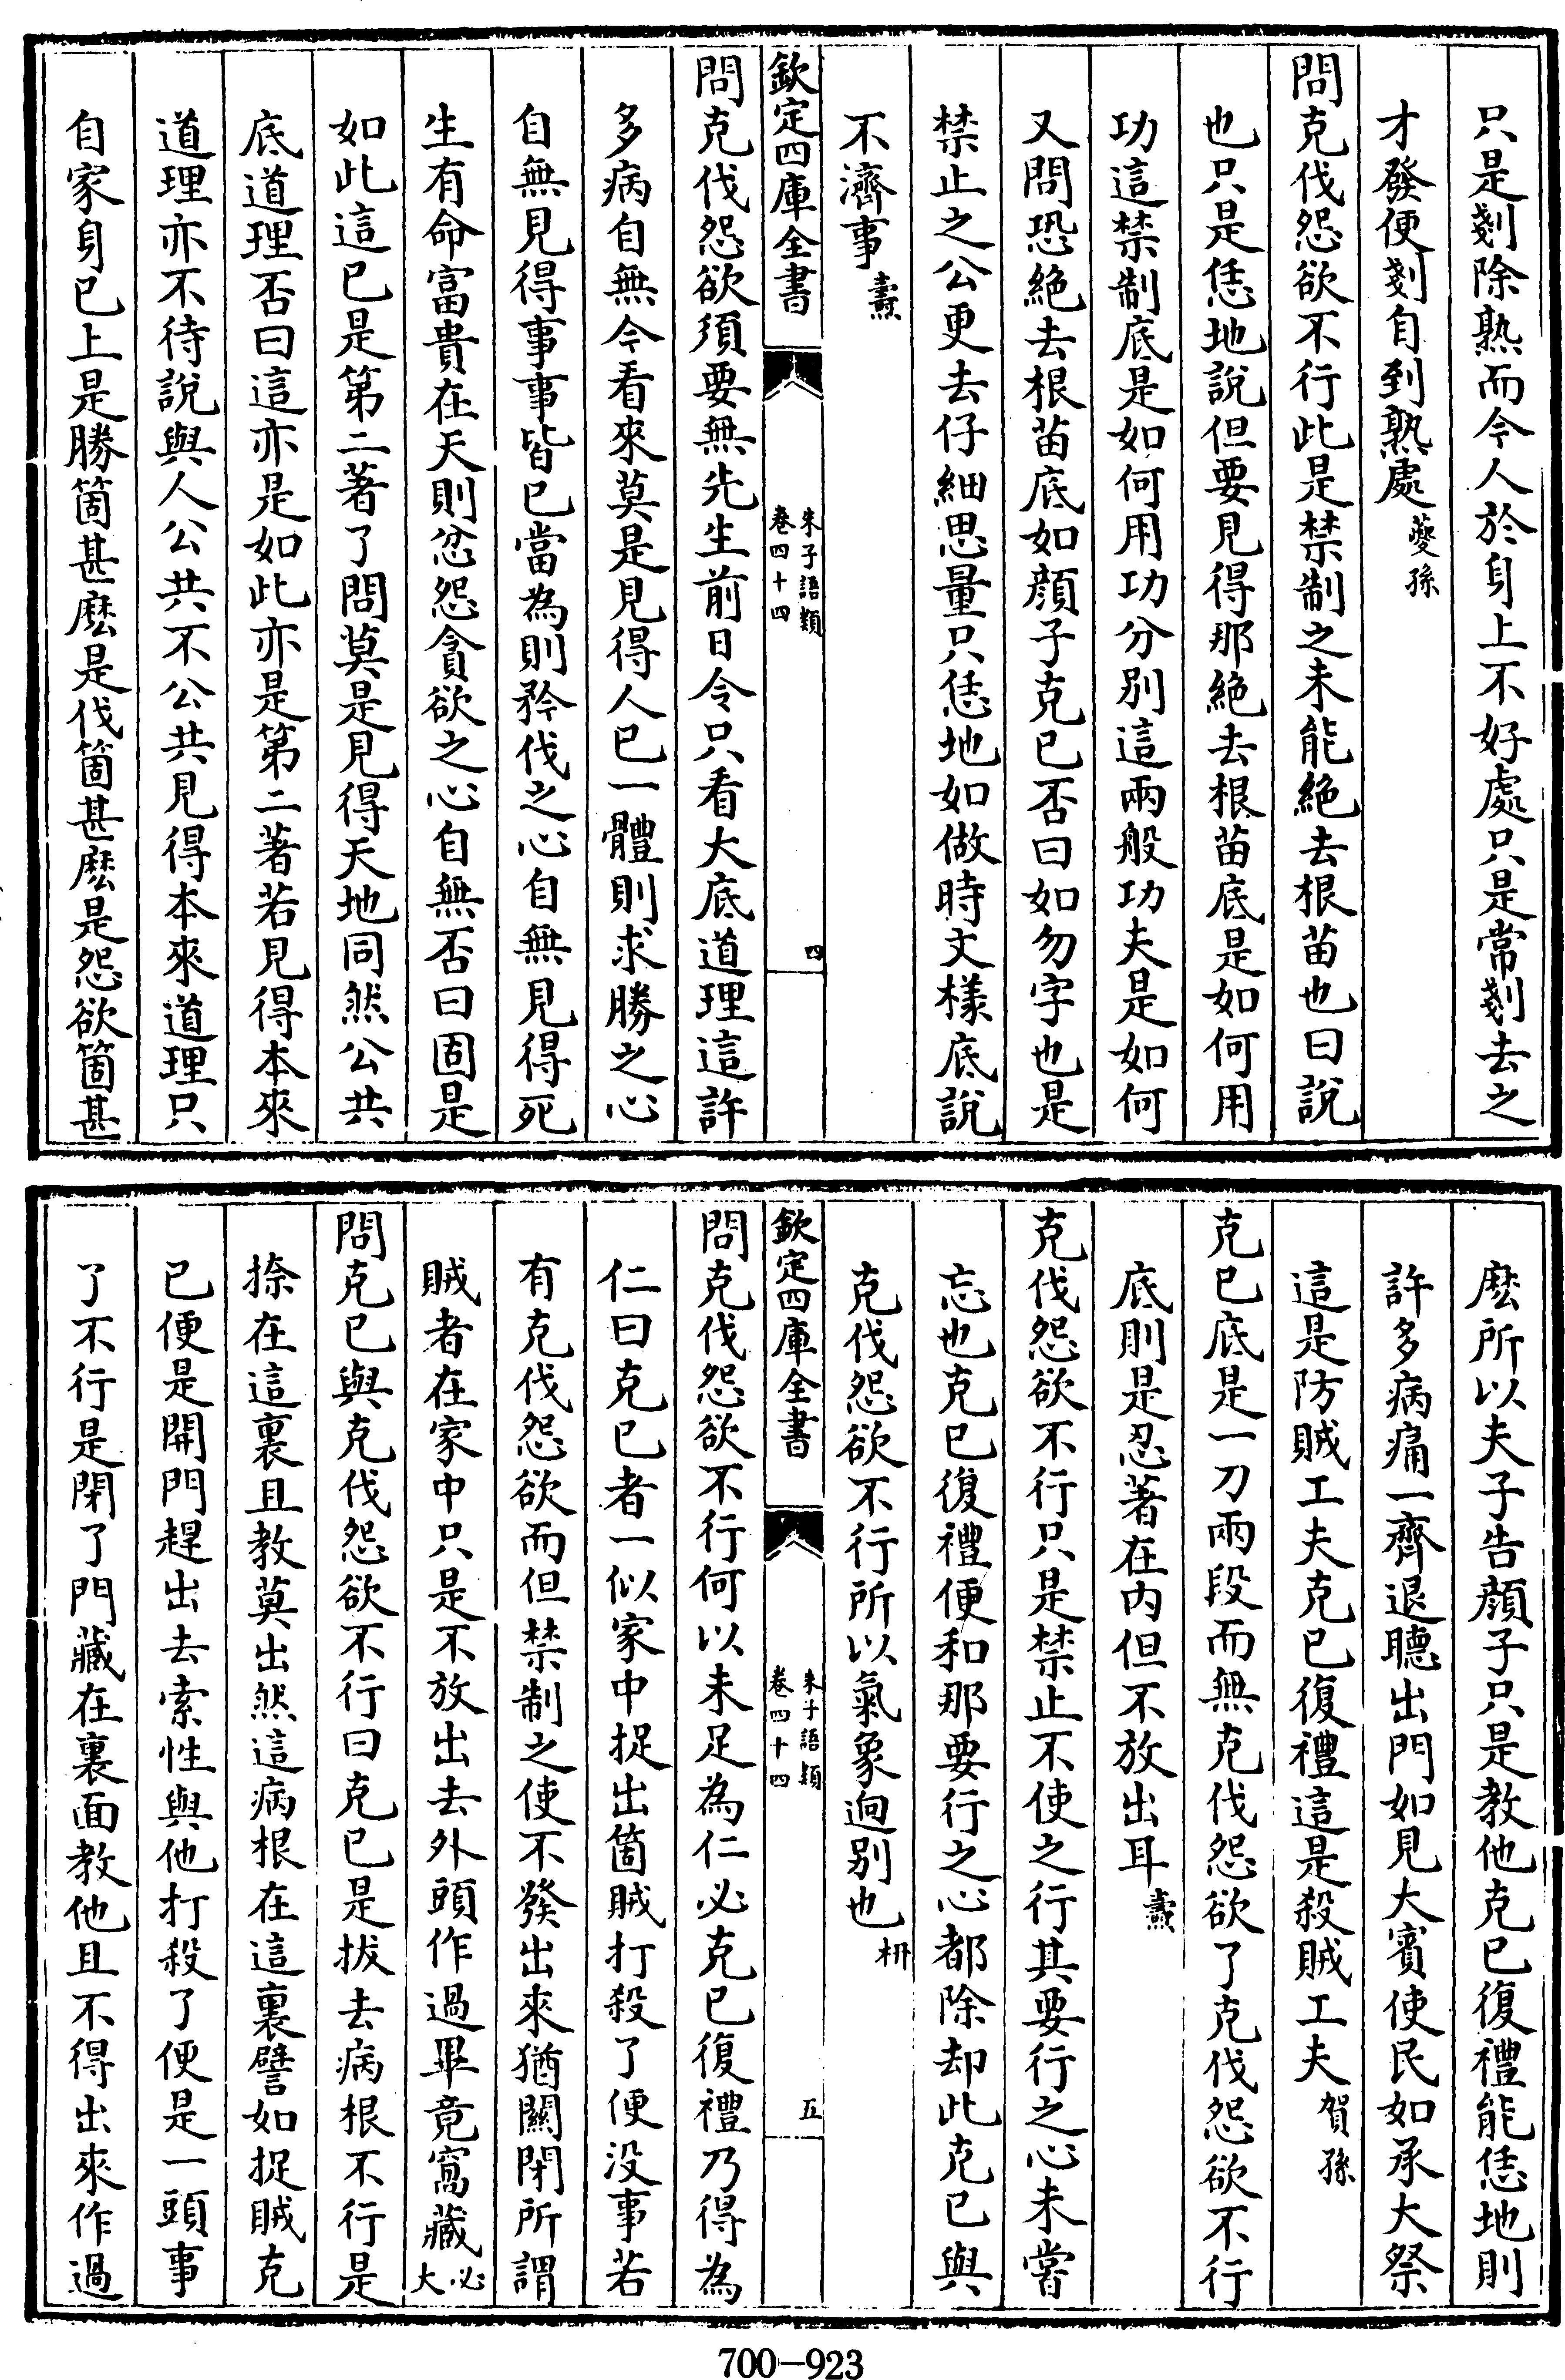 只是剗除熟而今人於身上不好處只是常剗去之
才發便剗自到熟處夔孫
問克伐怨欲不行此是禁制之未能絶去根苗也曰說
也只是恁地說但要見得那絶去根苗底是如何用
功這禁制底是如何用功分别這兩般功夫是如何
又問恐絶去根苗底如顔子克已否曰如勿字也是
禁止之公更去仔細思量只恁地如做時文様底說
不濟事燾
欽定四庫全書
朱子語類
卷四十四
四
問克伐怨欲須要無先生前日令只看大底道理這許
多病自無今看來莫是見得人已一體則求勝之心
自無見得事事皆已當為則矜伐之心自無見得死
生有命富貴在天則忿怨貪欲之心自無否曰固是
如此這已是第二著了問莫是見得天地同然公共
底道理否曰這亦是如此亦是第二著若見得本來
道理亦不待說與人公共不公共見得本來道理只
自家身已上是勝箇甚麽是伐箇甚麽是怨欲箇甚
麽所以夫子告顔子只是教他克已復禮能恁地則
許多病痛一齊退聽出門如見大賓使民如承大祭
這是防賊工夫克已復禮這是殺賊工夫賀孫
克已底是一刀兩段而無克伐怨欲了克伐怨欲不行
底則是忍著在内但不放出耳燾
克伐怨欲不行只是禁止不使之行其要行之心未嘗
忘也克已復禮便和那要行之心都除却此克已與
克伐怨欲不行所以氣象迥别也枅
欽定四庫全書
朱子語類
卷四十四
五
問克伐怨欲不行何以未足為仁必克已復禮乃得為
仁曰克已者一似家中捉出箇賊打殺了便没事若
有克伐怨欲而但禁制之使不發出來猶關閉所謂
賊者在家中只是不放出去外頭作過畢竟窩藏必大
問克已與克伐怨欲不行曰克已是拔去病根不行是
捺在這裏且教莫出然這病根在這裏譬如捉賊克
已便是開門趕出去索性與他打殺了便是一頭事
了不行是閉了門藏在裏面教他且不得出來作過
700-923